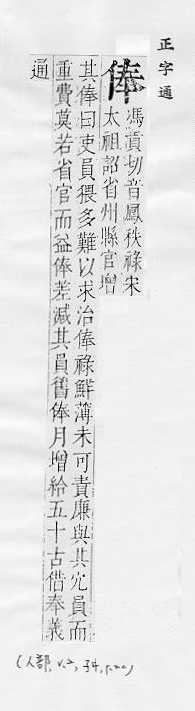 正字通
俸
馮貢切音鳳秩祿宋
太祖詔省州縣官增
其俸曰吏員猥多難以求治俸祿鮮薄未可責廉與其宂員而
重費莫若省官而益俸差減其員舊俸月增給五十古借奉義
通
(人部, v.2,